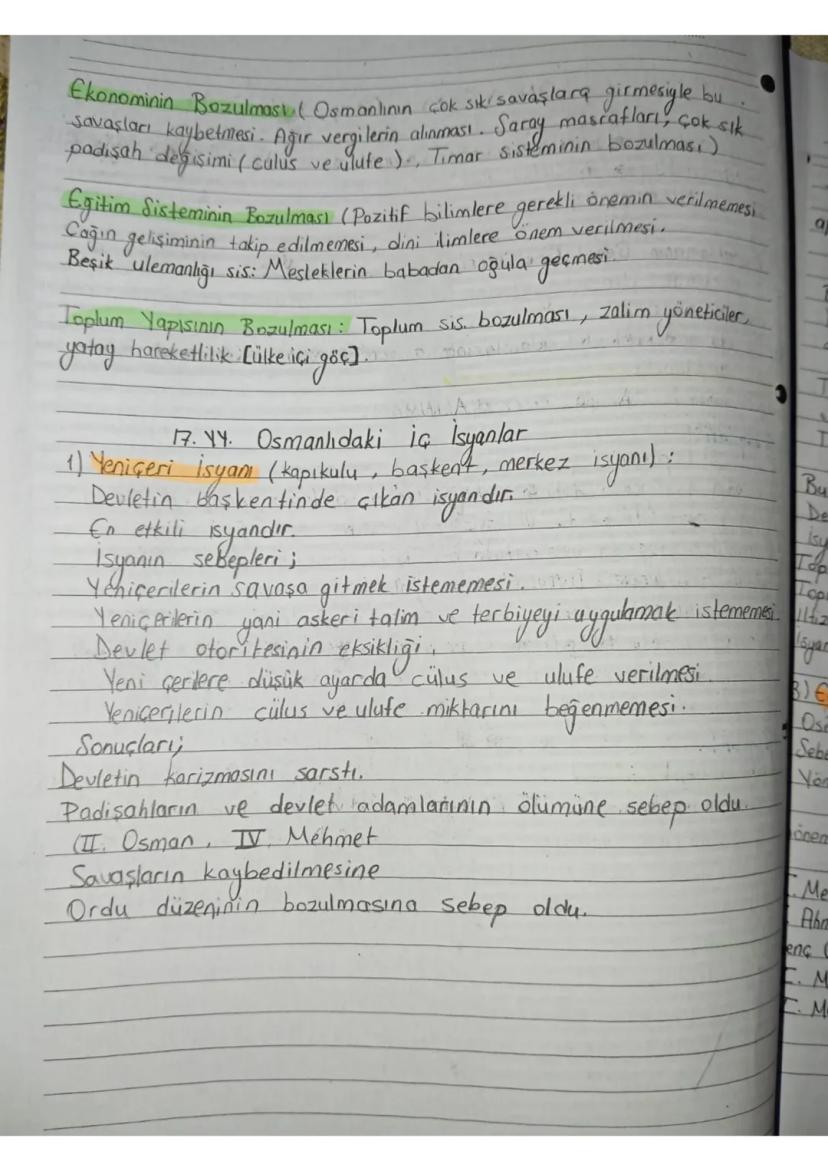 Ekonominin Bozulması ( Osmanlının çok sık savaşlara girmesiyle bu
savaşları kaybetmesi. Ağır vergilerin alınması. Saray masrafları, çok sık
padişah değişimi ( culus ve ulufe ). , Tımar sisteminin bozulması )
Eğitim Sisteminin Bozulması (Pozitif bilimlere gerekli önemin verilmemesi
Çağın gelişiminin takip edilmemesi, dini ilimlere önem verilmesi.
Beşik ulemanlığı sis: Mesleklerin babadan oğula geçmesi.
Toplum Yapısının Bozulması: Toplum sis. bozulması, zalim yöneticiler,
yatay hareketlilik [ülke içi göç].
17. YY. Osmanlıdaki iç İsyanlar
1) Yeniçeri İsyanı (kapıkulu, başkent, merkez isyanı) :
Devletin başkentinde çıkan isyandır.
En etkili isyandır.
İsyanın sebepleri ;
Yeniçerilerin savaşa gitmek istememesi.
Yeniçerilerin yani askeri talim ve terbiyeyi uygulamak istememesi
Devlet otoritesinin eksikliği.
Yeni çerilere düşük ayarda cülus ve ulufe verilmesi
Yeniçerilerin cülus ve ulufe miktarını beğenmemesi.
Sonuçları;
Devletin karizmasını sarstı.
Padişahların ve devlet adamlarının ölümüne sebep oldu.
(II. Osman, IV. Mehmet
Savaşların kaybedilmesine
Ordu düzeninin bozulmasına sebep oldu.
Bu
De
isy
Top
Topr
İltiz
İsyan
3) 
Osm
Sebe
Yön
önem
Me
Ahm
enç (
I. M